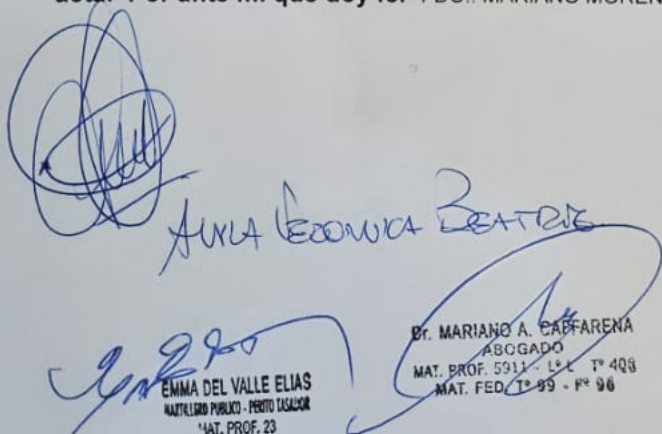 actar Por ante mi que doy fe. FDO.: MARIANO MOREN
VERONICA BEATRIZ
EMMA DEL VALLE ELIAS
MARTILLERO PUBLICO - PERITO TASADOR
MAT. PROF. 23
Dr. MARIANO A. CAFFARENA
ABOGADO
MAT. PROF. 5911 - Lº L Tº 408
MAT. FED. Tº 99 - Fº 96